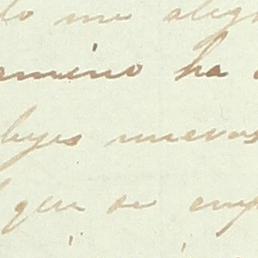 do me aleg
amino ha
leyes nuevas
que se emp